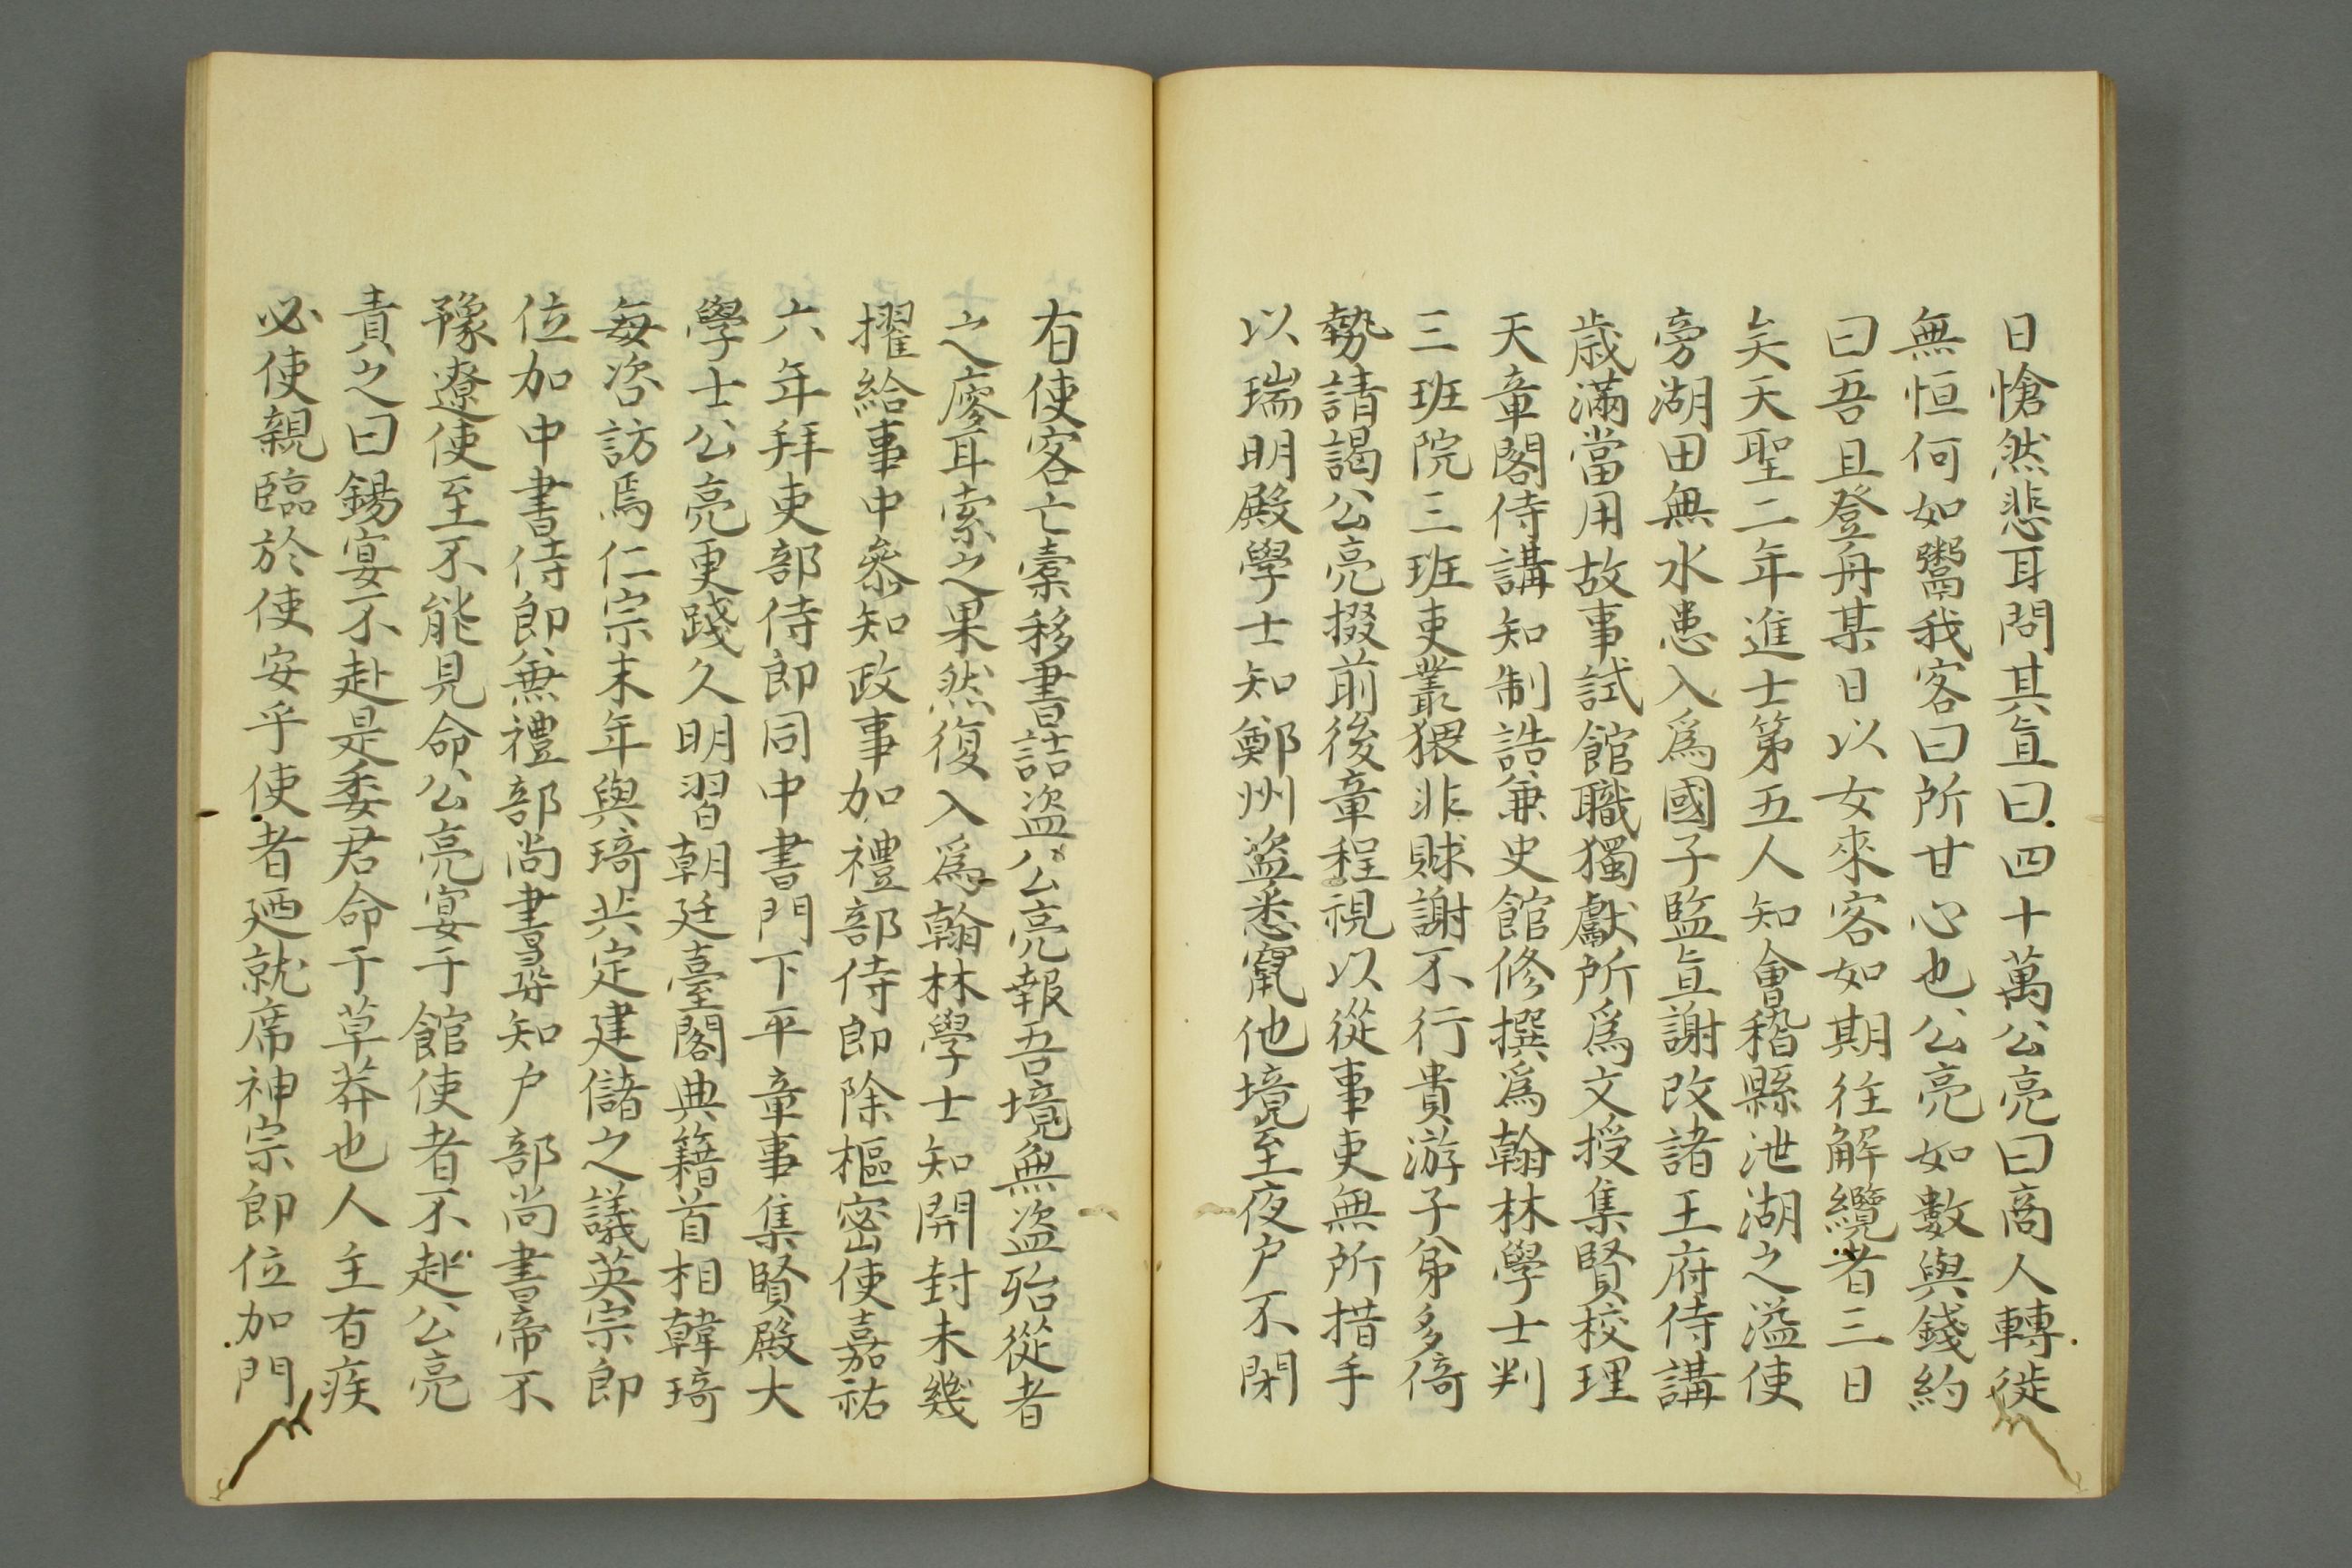 日愴然悲耳問其直曰四十萬公亮曰商人轉徙
無恒何如鬻我客曰所甘心也公亮如數與錢約
曰吾且登舟某日以女來客如期往解纜者三日
矣天聖二年進士第五人知會稽縣泄湖之溢使
旁湖田無水患入爲國子監直講改諸王府侍講
歲滿當用故事試館職獨獻所爲文授集賢校理
天章閣侍講知制誥兼史館修撰爲翰林學士判
三班院三班吏叢猥非賕謝不行貴游子弟多倚
勢請謁公亮掇前後章程視以從事吏無所措手
以瑞明殿學士知鄭州盜悉竄他境至夜户不閉
有使客亡橐移書詰盜公亮報吾境無盜殆從者
之廋耳索之果然復入爲翰林學士知開封未幾
擢給事中叅知政事加禮部侍郎除樞密使嘉祐
六年拜吏部侍郎同中書門下平章事集賢殿大
學士公亮更踐久明習朝廷臺閣典籍首相韓琦
每咨訪焉仁宗末年與琦共定建儲之議英宗即
位加中書侍郎兼禮部尚書尋知户部尚書帝不
豫遼使至不能見命公亮宴于館使者不赴公亮
責之曰錫宴不赴是委君命于草莽也人主有疾
必使親臨於使安乎使者廼就席神宗即位加門